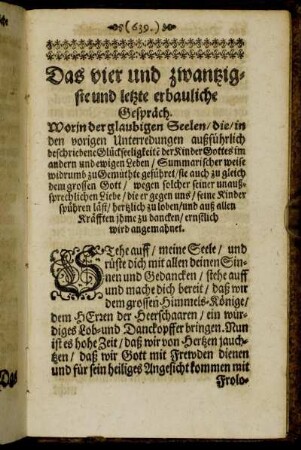 (639.)
Das vier und zwantzig-
ste und letzte erbauliche
Gespräch.
Worin der glaubigen Seelen / die / in
den vorigen Unterredungen außführlich
beschriebene Glückseligkeit der Kinder Gottes im
andern und ewigen Leben / Summarischer weise
widrumb zu Gemüthe geführet / sie auch zu gleich
dem grossen Gott / wegen solcher seiner unauß-
sprechlichen Liebe / die er gegen uns / seine Kinder
spühren läst / hertzlich zu loben / und aus allen
Kräfften ihme zu dancken / ernstlich
wird angemahnet.
STehe auff / meine Seele / und
rüste dich mit allen deinen Sin-
nen und Gedancken / stehe auff
und mache dich bereit / daß wir
dem grossen Himmels-Könige /
dem HErren der Heerschaaren / ein wür-
diges Lob- und Danckopffer bringen. Nun
ist es hohe Zeit / daß wir von Hertzen jauch-
tzen / daß wir Gott mit Frewden dienen
und für sein heiliges Angesicht kommen mit
Frolo-